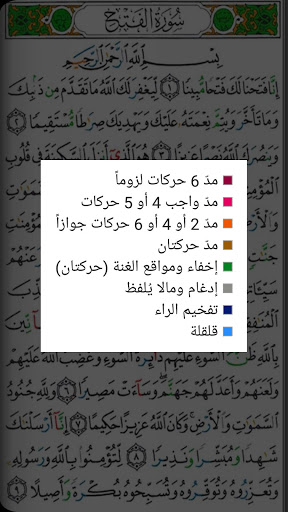 سُورَةُ الفَتْحِ
بِسْمِ اللَّهِ الرَّحْمَٰنِ الرَّحِيمِ
إِنَّا فَتَحْنَا لَكَ فَتْحًا مُّبِينًا ١ لِّيَغْفِرَ لَكَ اللَّهُ مَا تَقَدَّمَ مِن ذَنبِكَ
وَمَا تَأَخَّرَ وَيُتِمَّ نِعْمَتَهُ عَلَيْكَ وَيَهْدِيَكَ صِرَاطًا مُّسْتَقِيمًا ٢
وَيَنصُرَكَ اللَّهُ نَصْرًا عَزِيزًا ٣ هُوَ الَّذِي أَنزَلَ السَّكِينَةَ فِي قُلُوبِ
مدّ 6 حركات لزوماً
مدّ واجب 4 أو 5 حركات
مدّ 2 أو 4 أو 6 حركات جوازاً
مدّ حركتان
إخفاء ومواقع الغنة (حركتان)
إدغام ومالا يُلفظ
تفخيم الراء
قلقلة
بِاللَّهِ ظَنَّ السَّوْءِ عَلَيْهِمْ دَائِرَةُ السَّوْءِ وَغَضِبَ اللَّهُ عَلَيْهِمْ
وَلَعَنَهُمْ وَأَعَدَّ لَهُمْ جَهَنَّمَ وَسَاءَتْ مَصِيرًا ٦ وَلِلَّهِ جُنُودُ
السَّمَاوَاتِ وَالْأَرْضِ وَكَانَ اللَّهُ عَزِيزًا حَكِيمًا ٧ إِنَّا أَرْسَلْنَاكَ
شَاهِدًا وَمُبَشِّرًا وَنَذِيرًا ٨ لِّتُؤْمِنُوا بِاللَّهِ وَرَسُولِهِ
وَتُعَزِّرُوهُ وَتُوَقِّرُوهُ وَتُسَبِّحُوهُ بُكْرَةً وَأَصِيلًا ٩